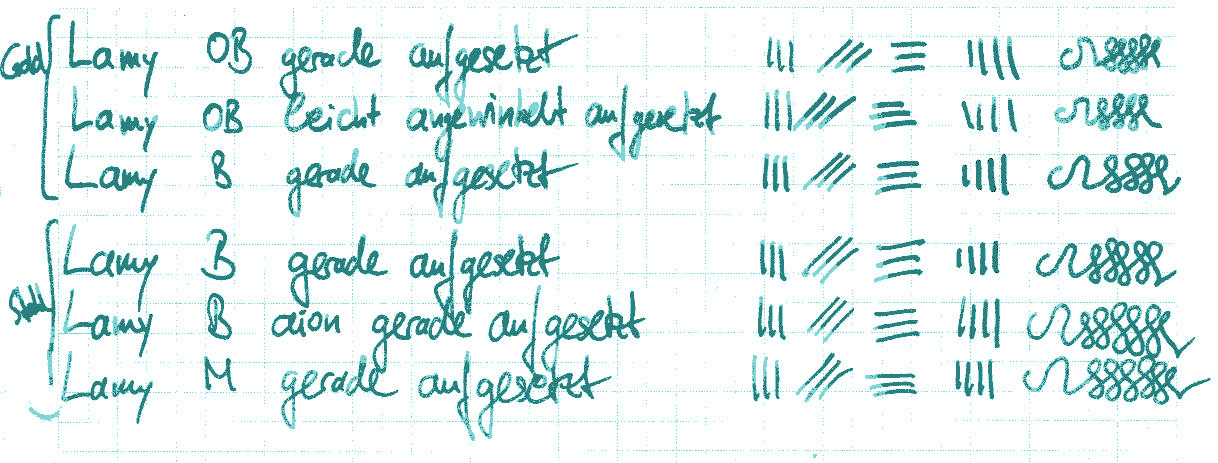 Gold Lamy OB gerade aufgesetzt
Lamy OB leicht angewinkelt aufgesetzt
Lamy B gerade aufgesetzt
Stahl Lamy B gerade aufgesetzt
Lamy B aion gerade aufgesetzt
Lamy M gerade aufgesetzt